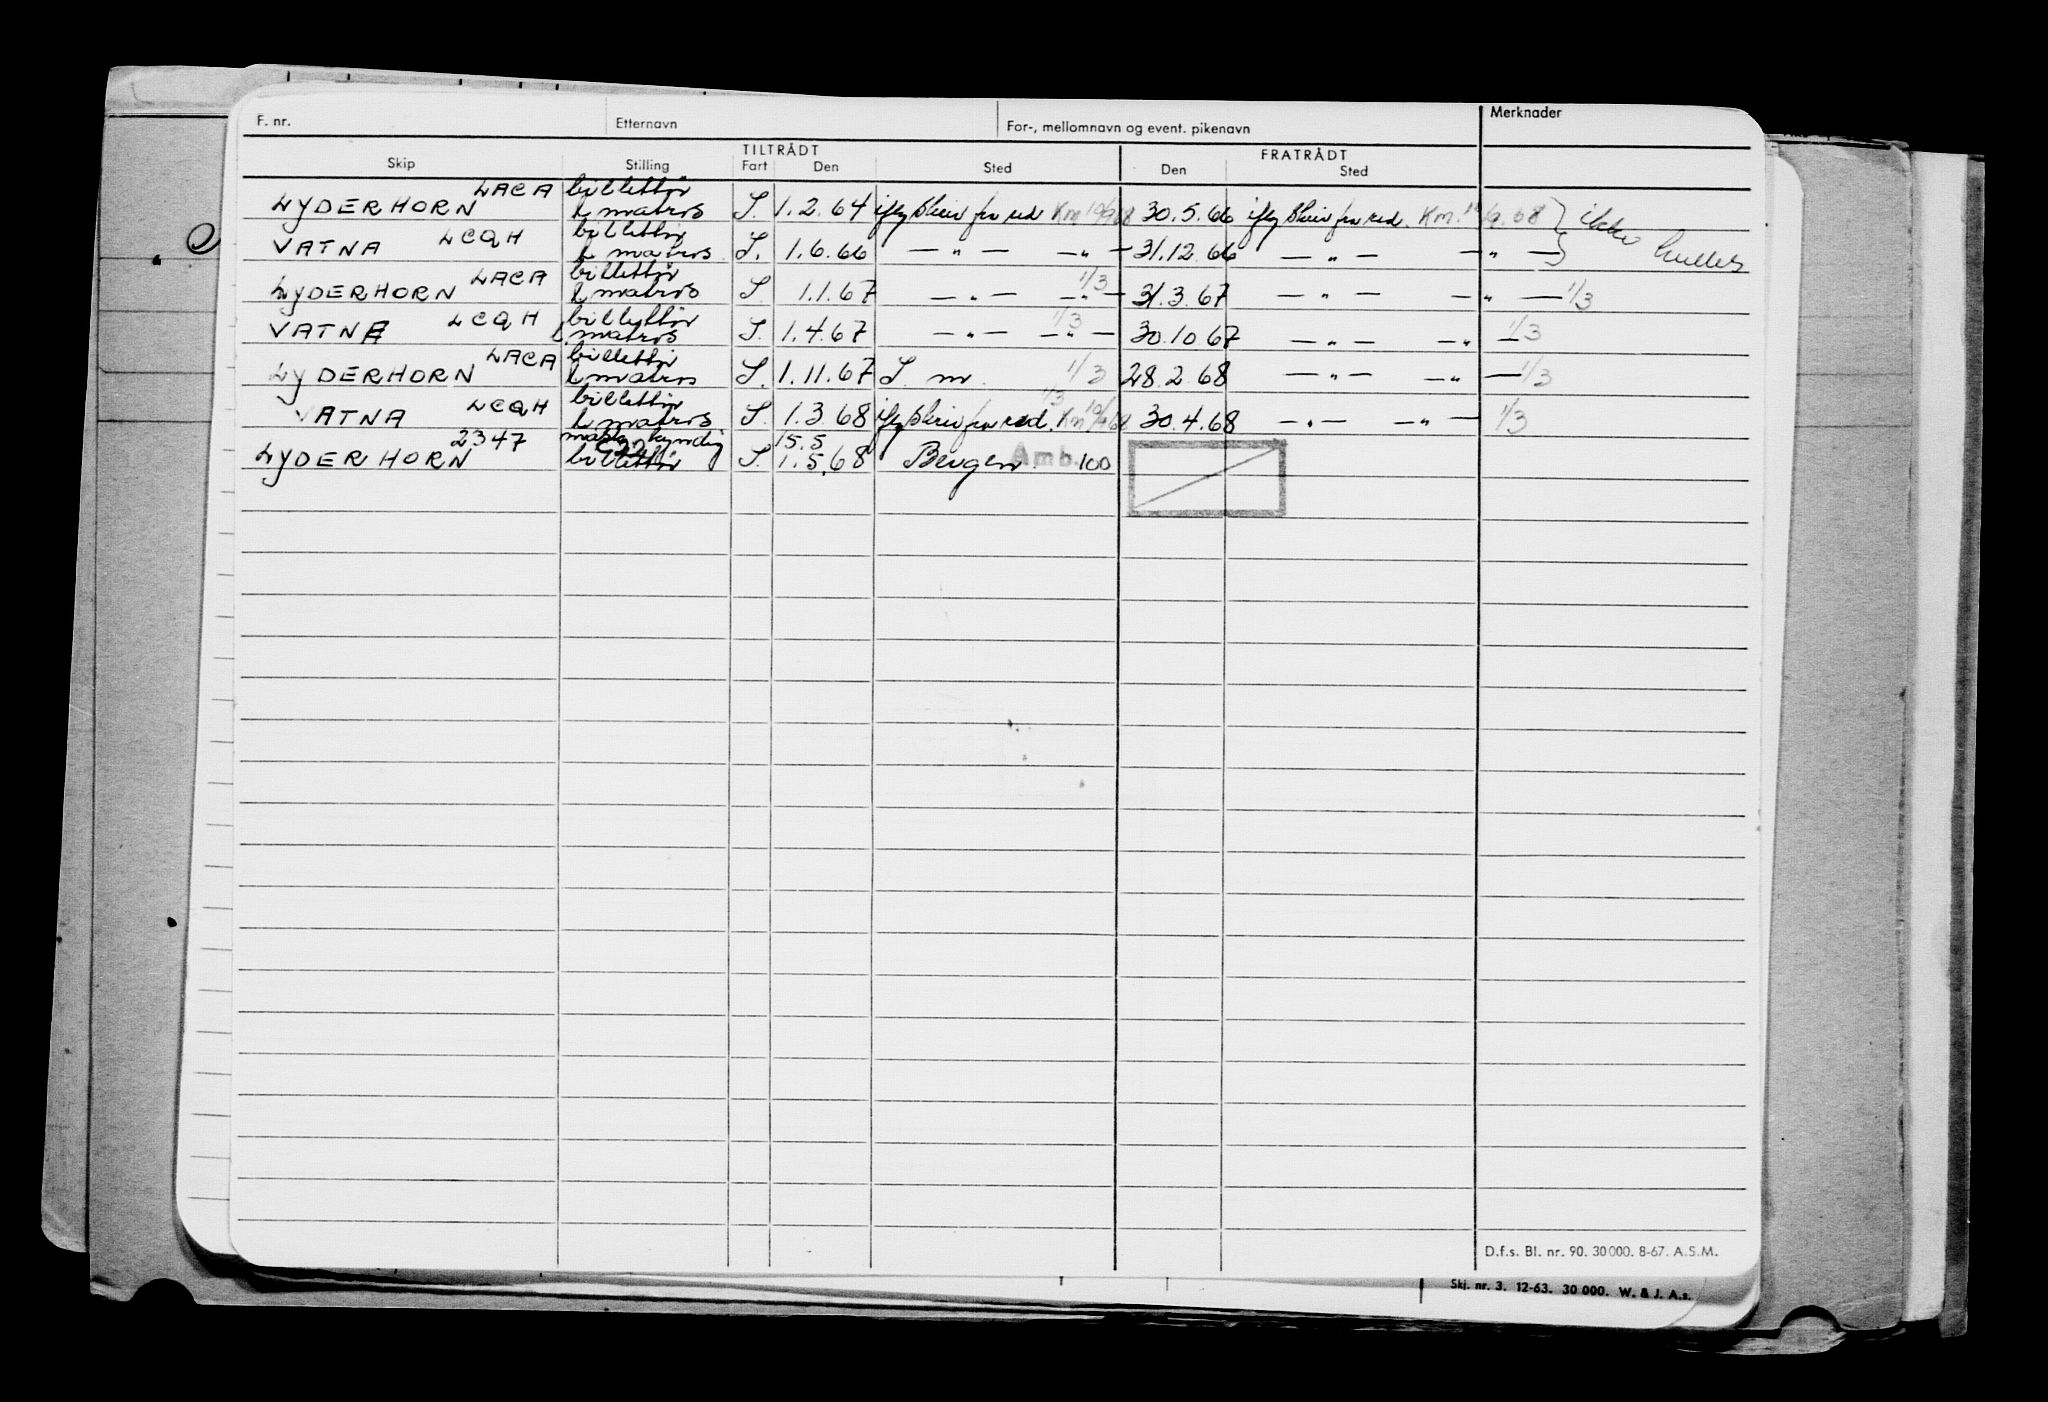 F. nr. Etternavn For-, mellomnavn og event. pikenavn Merknader
TILTRÅDT FRATRÅDT
Skip Stilling Fart Den Sted Den Sted
LACA billettør
LYDERHORN & matros S. 1.2.64 iflg skriv fra red Km 10/9 68 30.5.66 iflg skriv fra red. Km. 10/9.68 } ikke
LCQH billettør
VATNA & matros S. 1.6.66 — " — — " — 31.12.66 — " — — " — hullet
LACA billettør 1/3
LYDERHORN & matros S. 1.1.67 — " — — " — 31.3.67 — " — — " — 1/3
LCQH billettør 1/3
VATNA & matros S. 1.4.67 — " — — " — 30.10.67 — " — — " — 1/3
LACA billettør
LYDERHORN & matros S. 1.11.67 S m. 1/3 28.2.68 — " — — " — 1/3
LCQH billettør 1/3
VATNA & matros S. 1.3.68 iflg skriv fra red. Km 10/9 68 30.4.68 — " — — " — 1/3
2347 kyndig 15.5
LYDERHORN billettør S. 1.5.68 Bergen Amb. 100
D.f.s. Bl. nr. 90. 30000. 8-67. A.S.M.
Skj. nr. 3. 12-63. 30 000. W. & J. A.s.